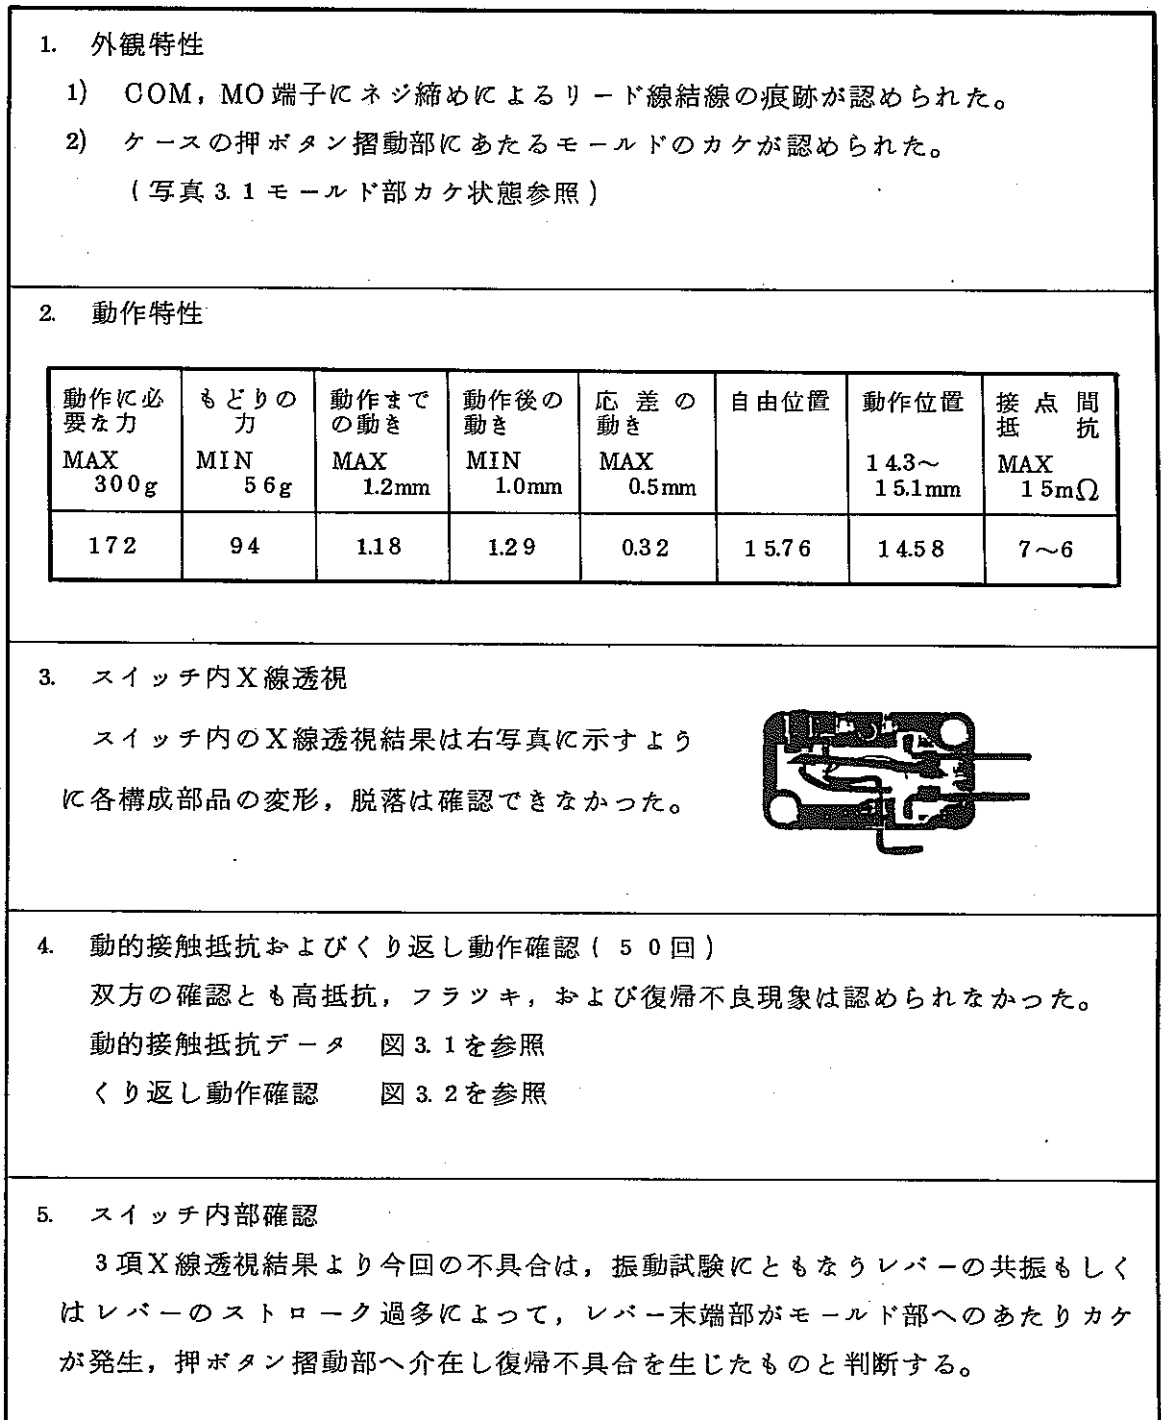 1. 外観特性
1) COM, MO端子にネジ締めによるリード線結線の痕跡が認められた。
2) ケースの押ボタン摺動部にあたるモールドのカケが認められた。
(写真3.1モールド部カケ状態参照)
2. 動作特性
動作に必要な力 MAX 300g
もどりの力 MIN 56g
動作までの動き MAX 1.2mm
動作後の動き MIN 1.0mm
応差の動き MAX 0.5mm
自由位置
動作位置 14.3〜15.1mm
接点間抵抗 MAX 15mΩ
172 94 1.18 1.29 0.32 15.76 14.58 7〜6
3. スイッチ内X線透視
スイッチ内のX線透視結果は右写真に示すよう
に各構成部品の変形，脱落は確認できなかった。
4. 動的接触抵抗およびくり返し動作確認(50回)
双方の確認とも高抵抗，フラツキ，および復帰不良現象は認められなかった。
動的接触抵抗データ 図3.1を参照
くり返し動作確認 図3.2を参照
5. スイッチ内部確認
3項X線透視結果より今回の不具合は，振動試験にともなうレバーの共振もしく
はレバーのストローク過多によって，レバー末端部がモールド部へのあたりカケ
が発生，押ボタン摺動部へ介在し復帰不具合を生じたものと判断する。